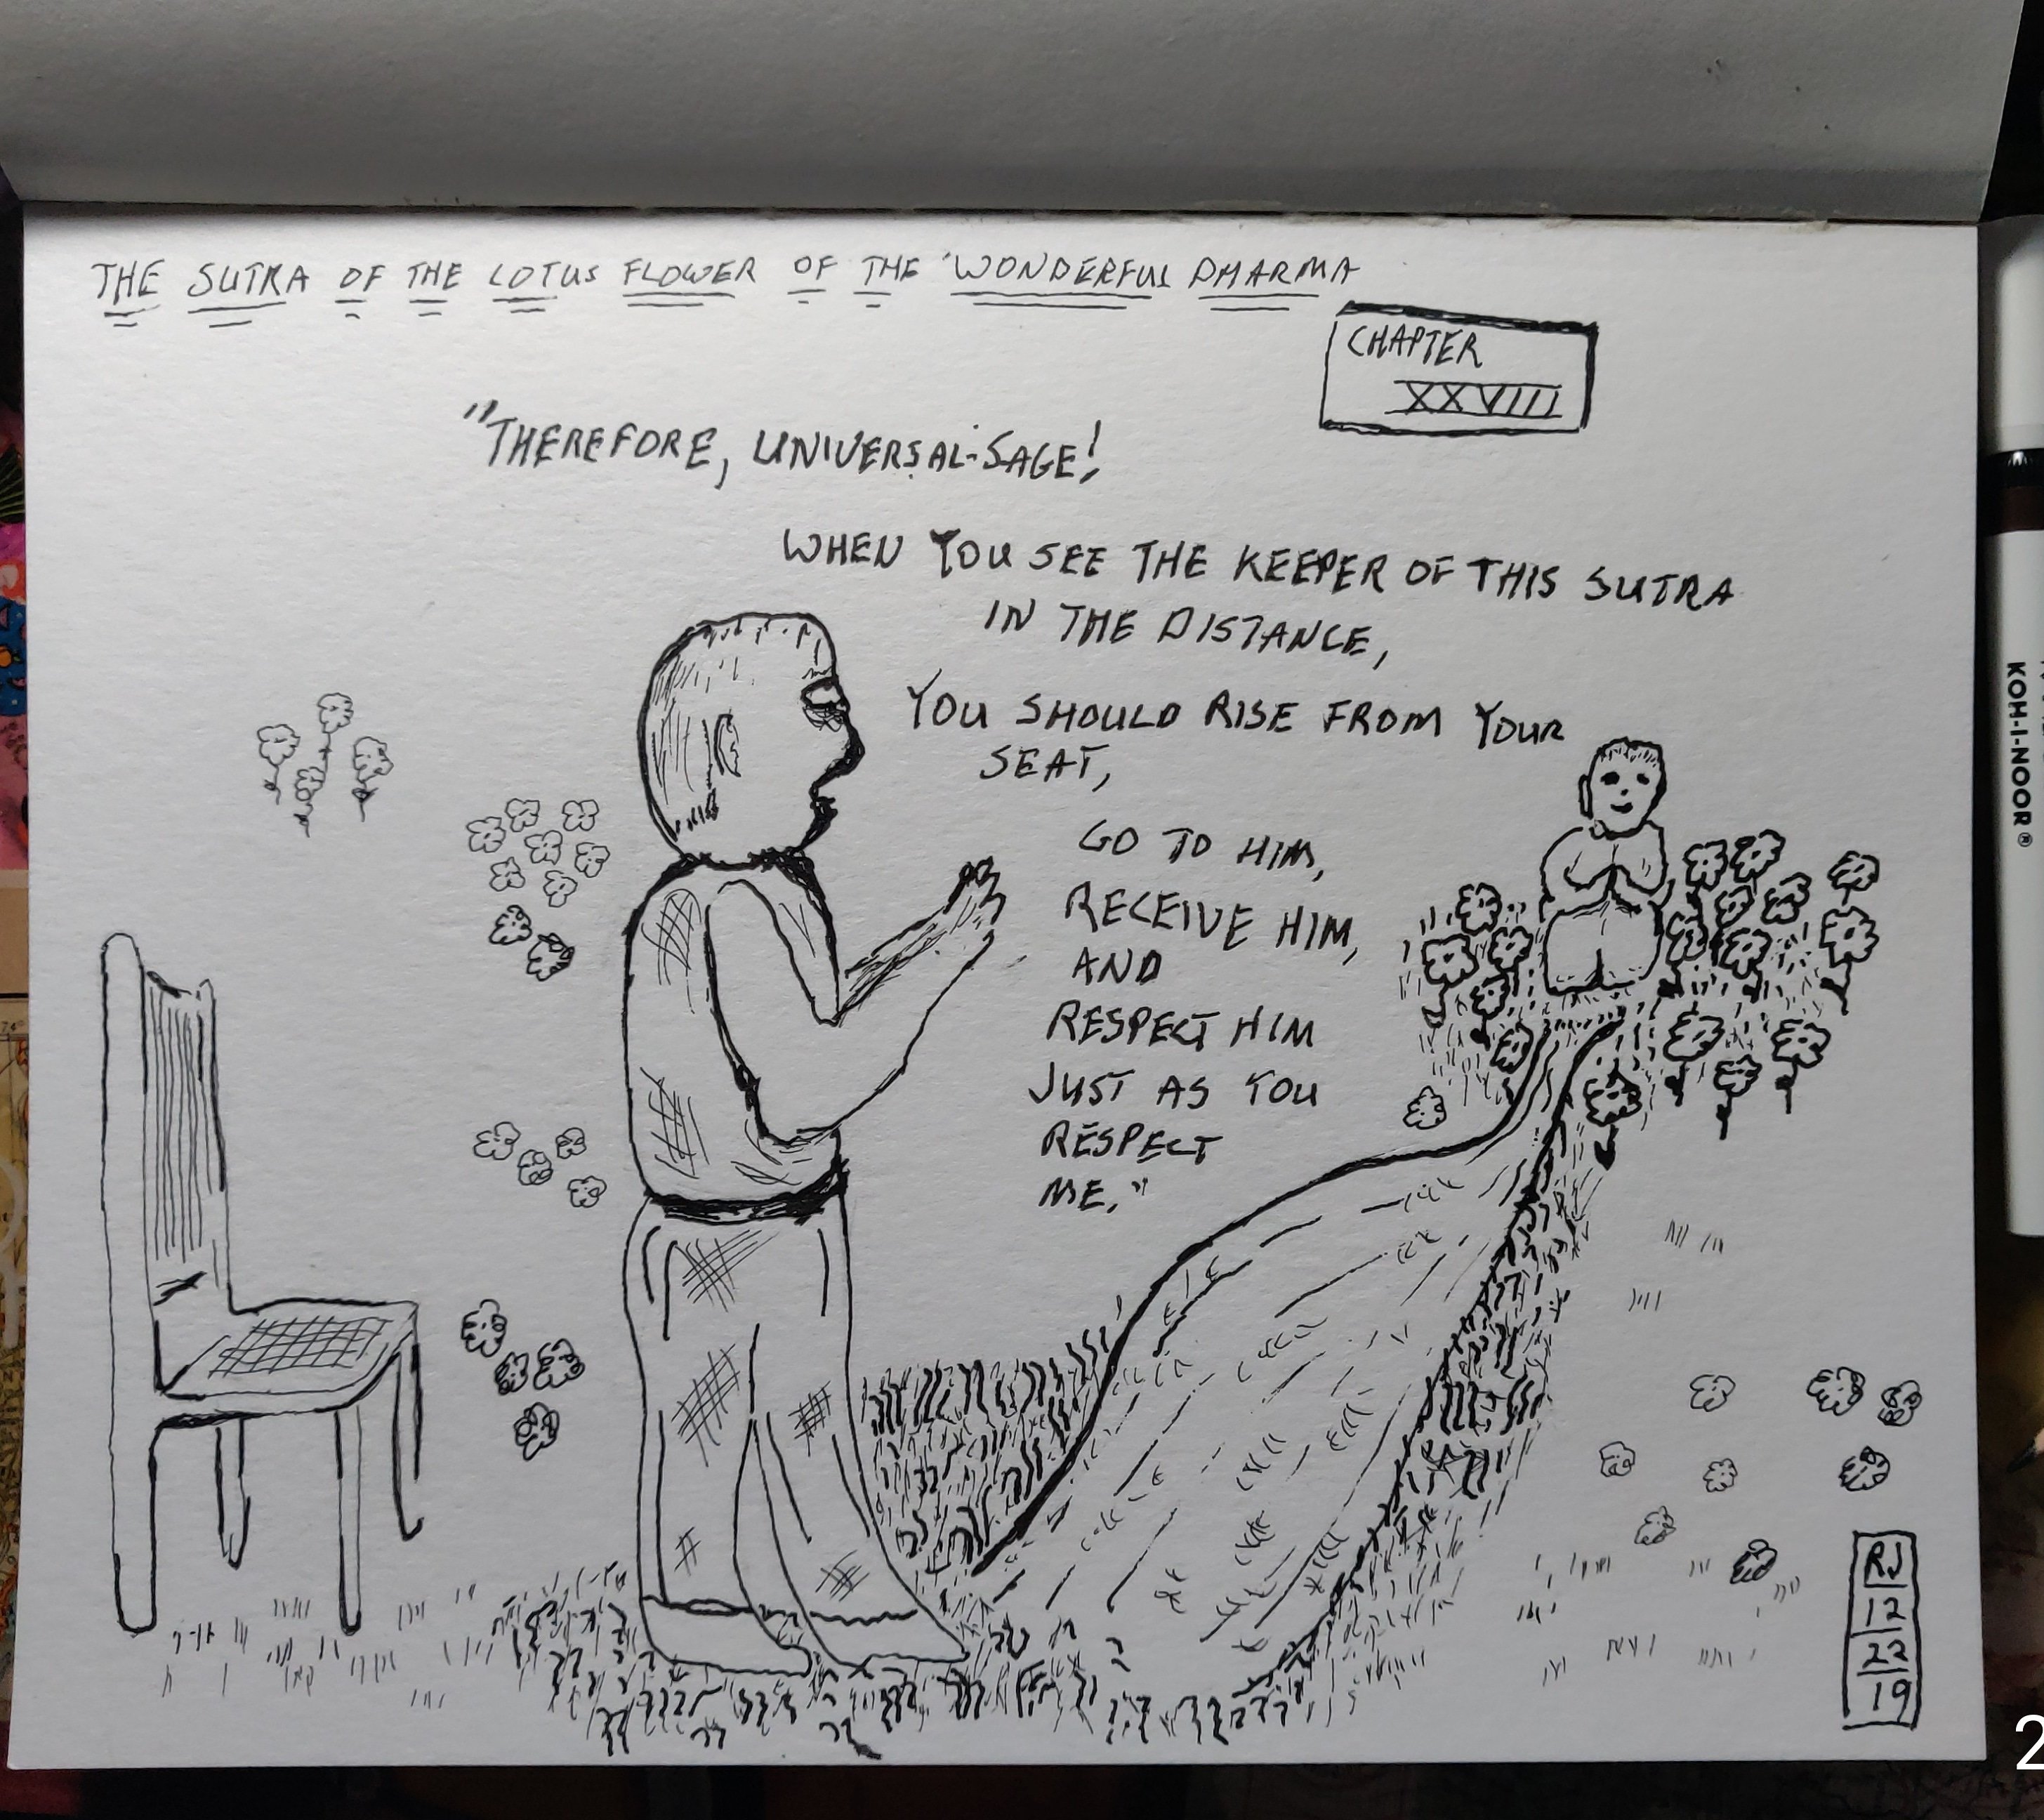 THE SUTRA OF THE LOTUS FLOWER OF THE WONDERFUL DHARMA
CHAPTER
XXVIII
"THEREFORE, UNIVERSAL-SAGE!
WHEN YOU SEE THE KEEPER OF THIS SUTRA
IN THE DISTANCE,
YOU SHOULD RISE FROM YOUR
SEAT,
GO TO HIM,
RECEIVE HIM,
AND
RESPECT HIM
JUST AS YOU
RESPECT
ME."
RJ
12
22
19
KOH-I-NOOR®
2